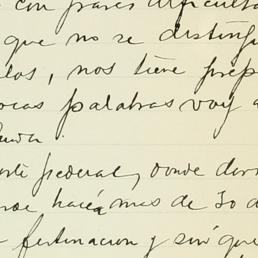 con graves dificulta
que no se disting
los, nos tiene prep
ocas palabras voy a
federal, donde dor
hacía mas de 30 a
fertinacion y sin que